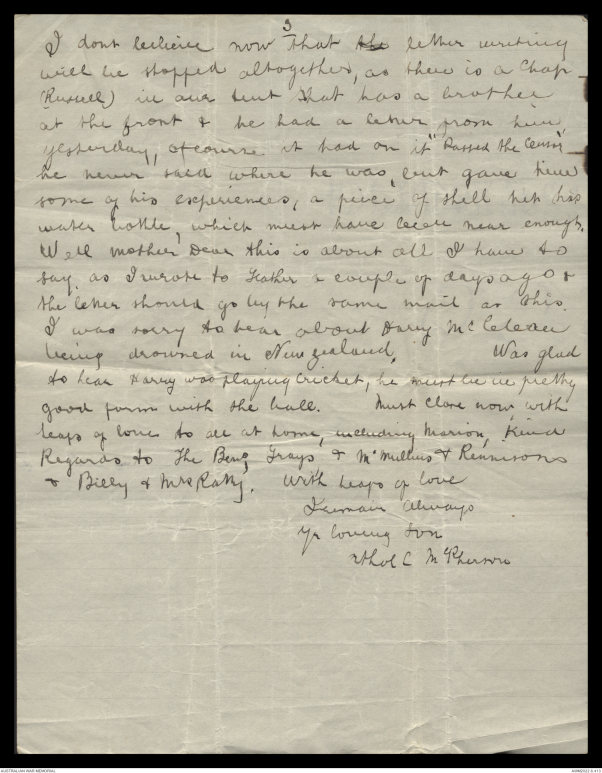 3
I dont believe now that the letter writing
will be stopped altogether, as there is a Chap
(Russell) in our tent that has a brother
at the front & he had a letter from him
yesterday, ofcourse it had on it "Passed the Censor"
he never said where he was, but gave him
some of his experiences, a piece of shell hit his
water bottle, which must have been near enough.
Well Mother Dear this is about all I have to
say as I wrote to Father a couple of days ago &
the letter should go by the same mail as this.
I was sorry to hear about Harry McClelean
being drowned in New zealand. Was glad
to hear Harry was playing Cricket, he must be in pretty
good form with the ball. Must close now with
heaps of love to all at home, including Marion, Kind
Regards to The Grays & McMullins & Rennisons
& Billy & Mrs Ratty. With heaps of love
I remain Always
Yr loving Son
Athol C McPherson
AUSTRALIAN WAR MEMORIAL